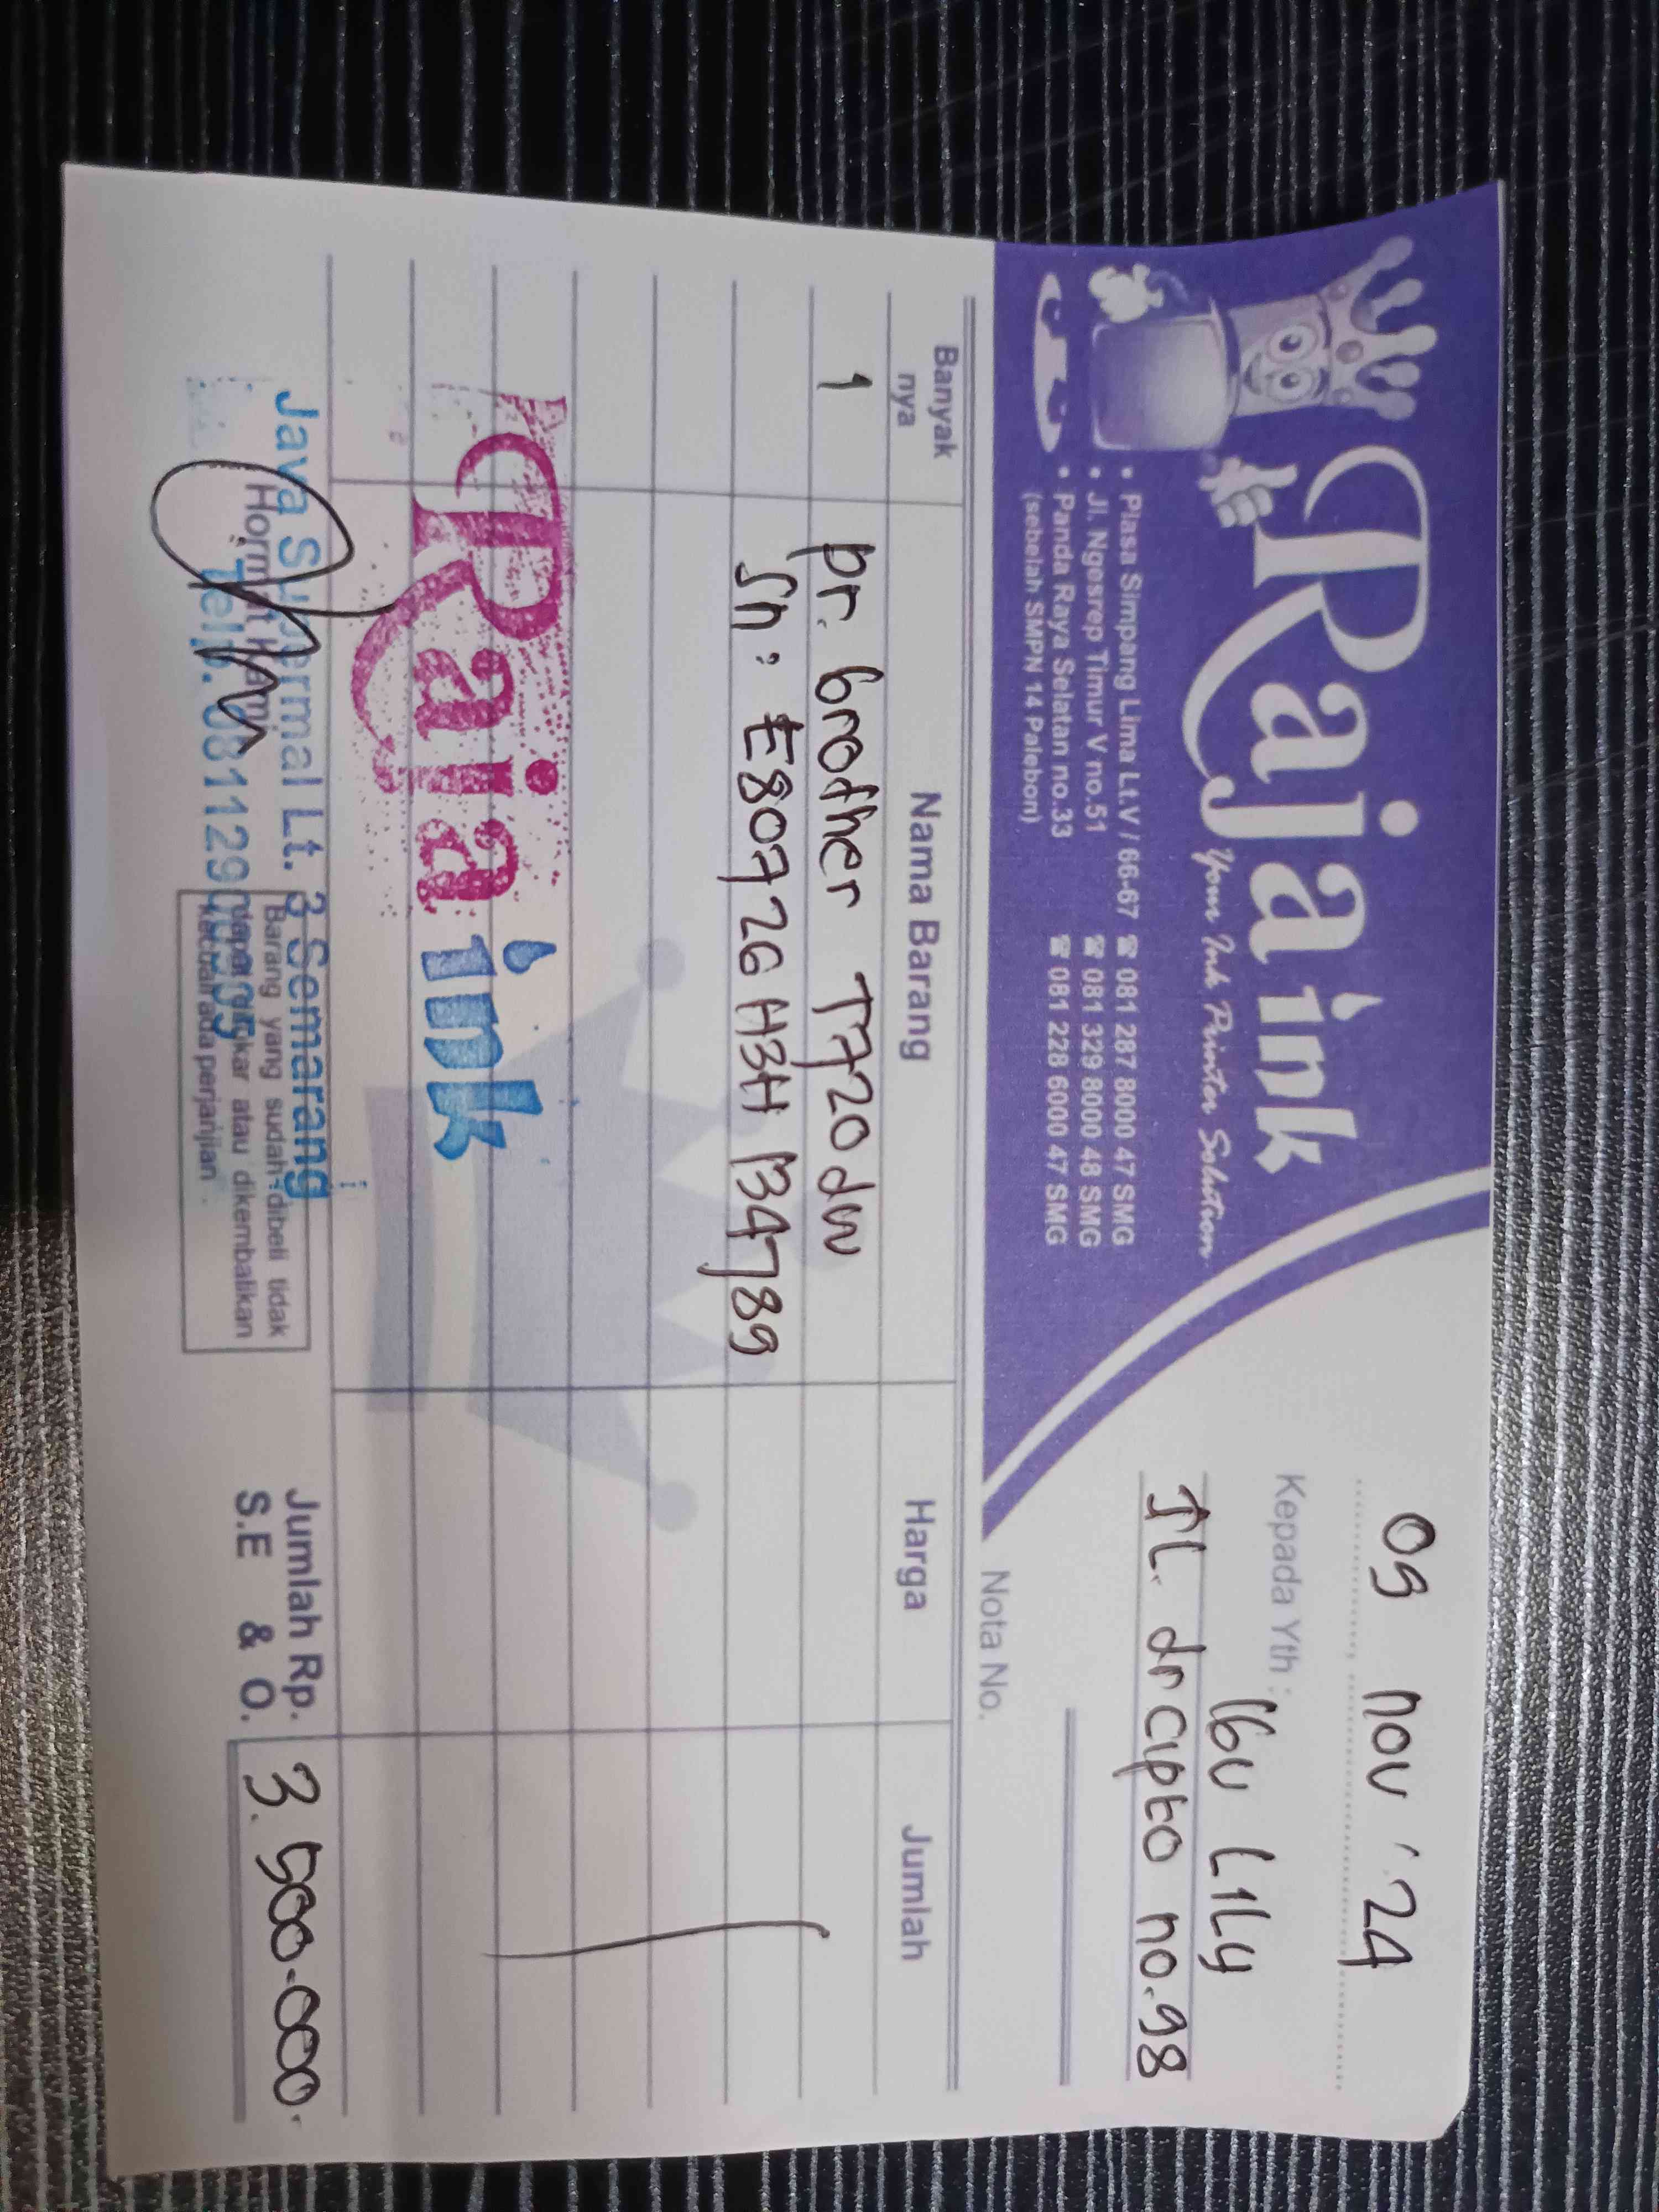 Raja ink
Your Ink Printer Solution
• Plasa Simpang Lima Lt.V / 66-67 ☎ 081 287 8000 47 SMG
• Jl. Ngesrep Timur V no.51 ☎ 081 329 8000 48 SMG
• Panda Raya Selatan no.33 ☎ 081 228 6000 47 SMG
(sebelah SMPN 14 Palebon)
09 nov '24
Kepada Yth :
Ibu LILY
JL. dr cipto no.98
Nota No.
Banyak nya Nama Barang Harga Jumlah
1 pr. brother T720dw
Sn: E80726H3H134789
Raja ink
Java Supermal Lt. 3 Semarang
Hormat Kami
Telp.
Barang yang sudah dibeli tidak
dapat ditukar atau dikembalikan
kecuali ada perjanjian .
Jumlah Rp. 3.500.000.
S.E & O.